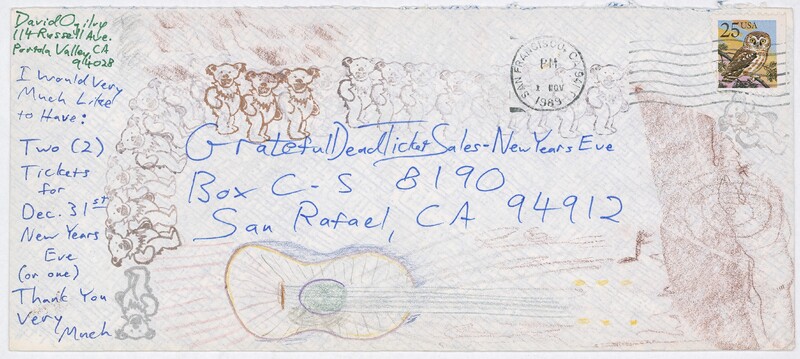 David Ogilvy
114 Russell Ave.
Portola Valley, CA
94028
I would Very
Much Like
to Have:
Two (2)
Tickets
for
Dec. 31st
New Years
Eve
(or one)
Thank You
Very
Much
Grateful Dead Ticket Sales - New Years Eve
Box C-S 8190
San Rafael, CA 94912
SAN FRANCISCO, CA 941
PM
1 NOV
1989
25 USA